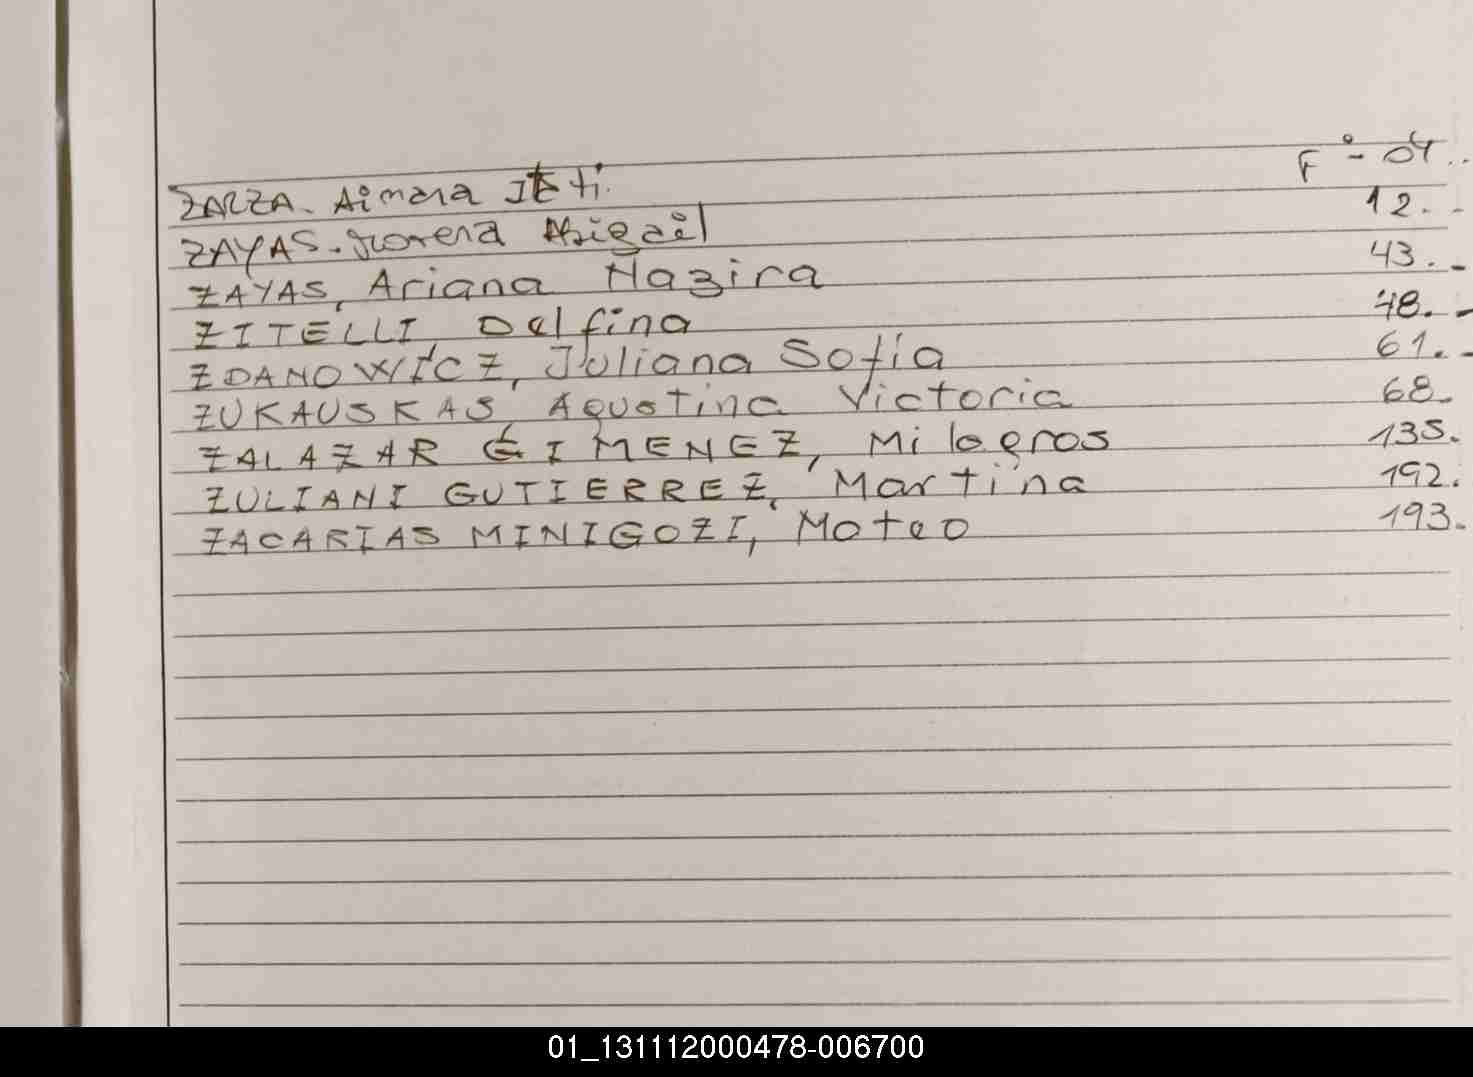 ZARZA. Aimara Itati. F°- 04..
ZAYAS. Morena Abigail 12.-
ZAYAS, Ariana Nazira 43.-
ZITELLI, Delfina 48.-
ZDANOWICZ, Juliana Sofia 61.-
ZUKAUSKAS Agustina Victoria 68.
ZALAZAR GIMENEZ, Milagros 135.
ZULIANI GUTIERREZ, Martina 192.
ZACARIAS MINIGOZI, Mateo 193.
01_131112000478-006700